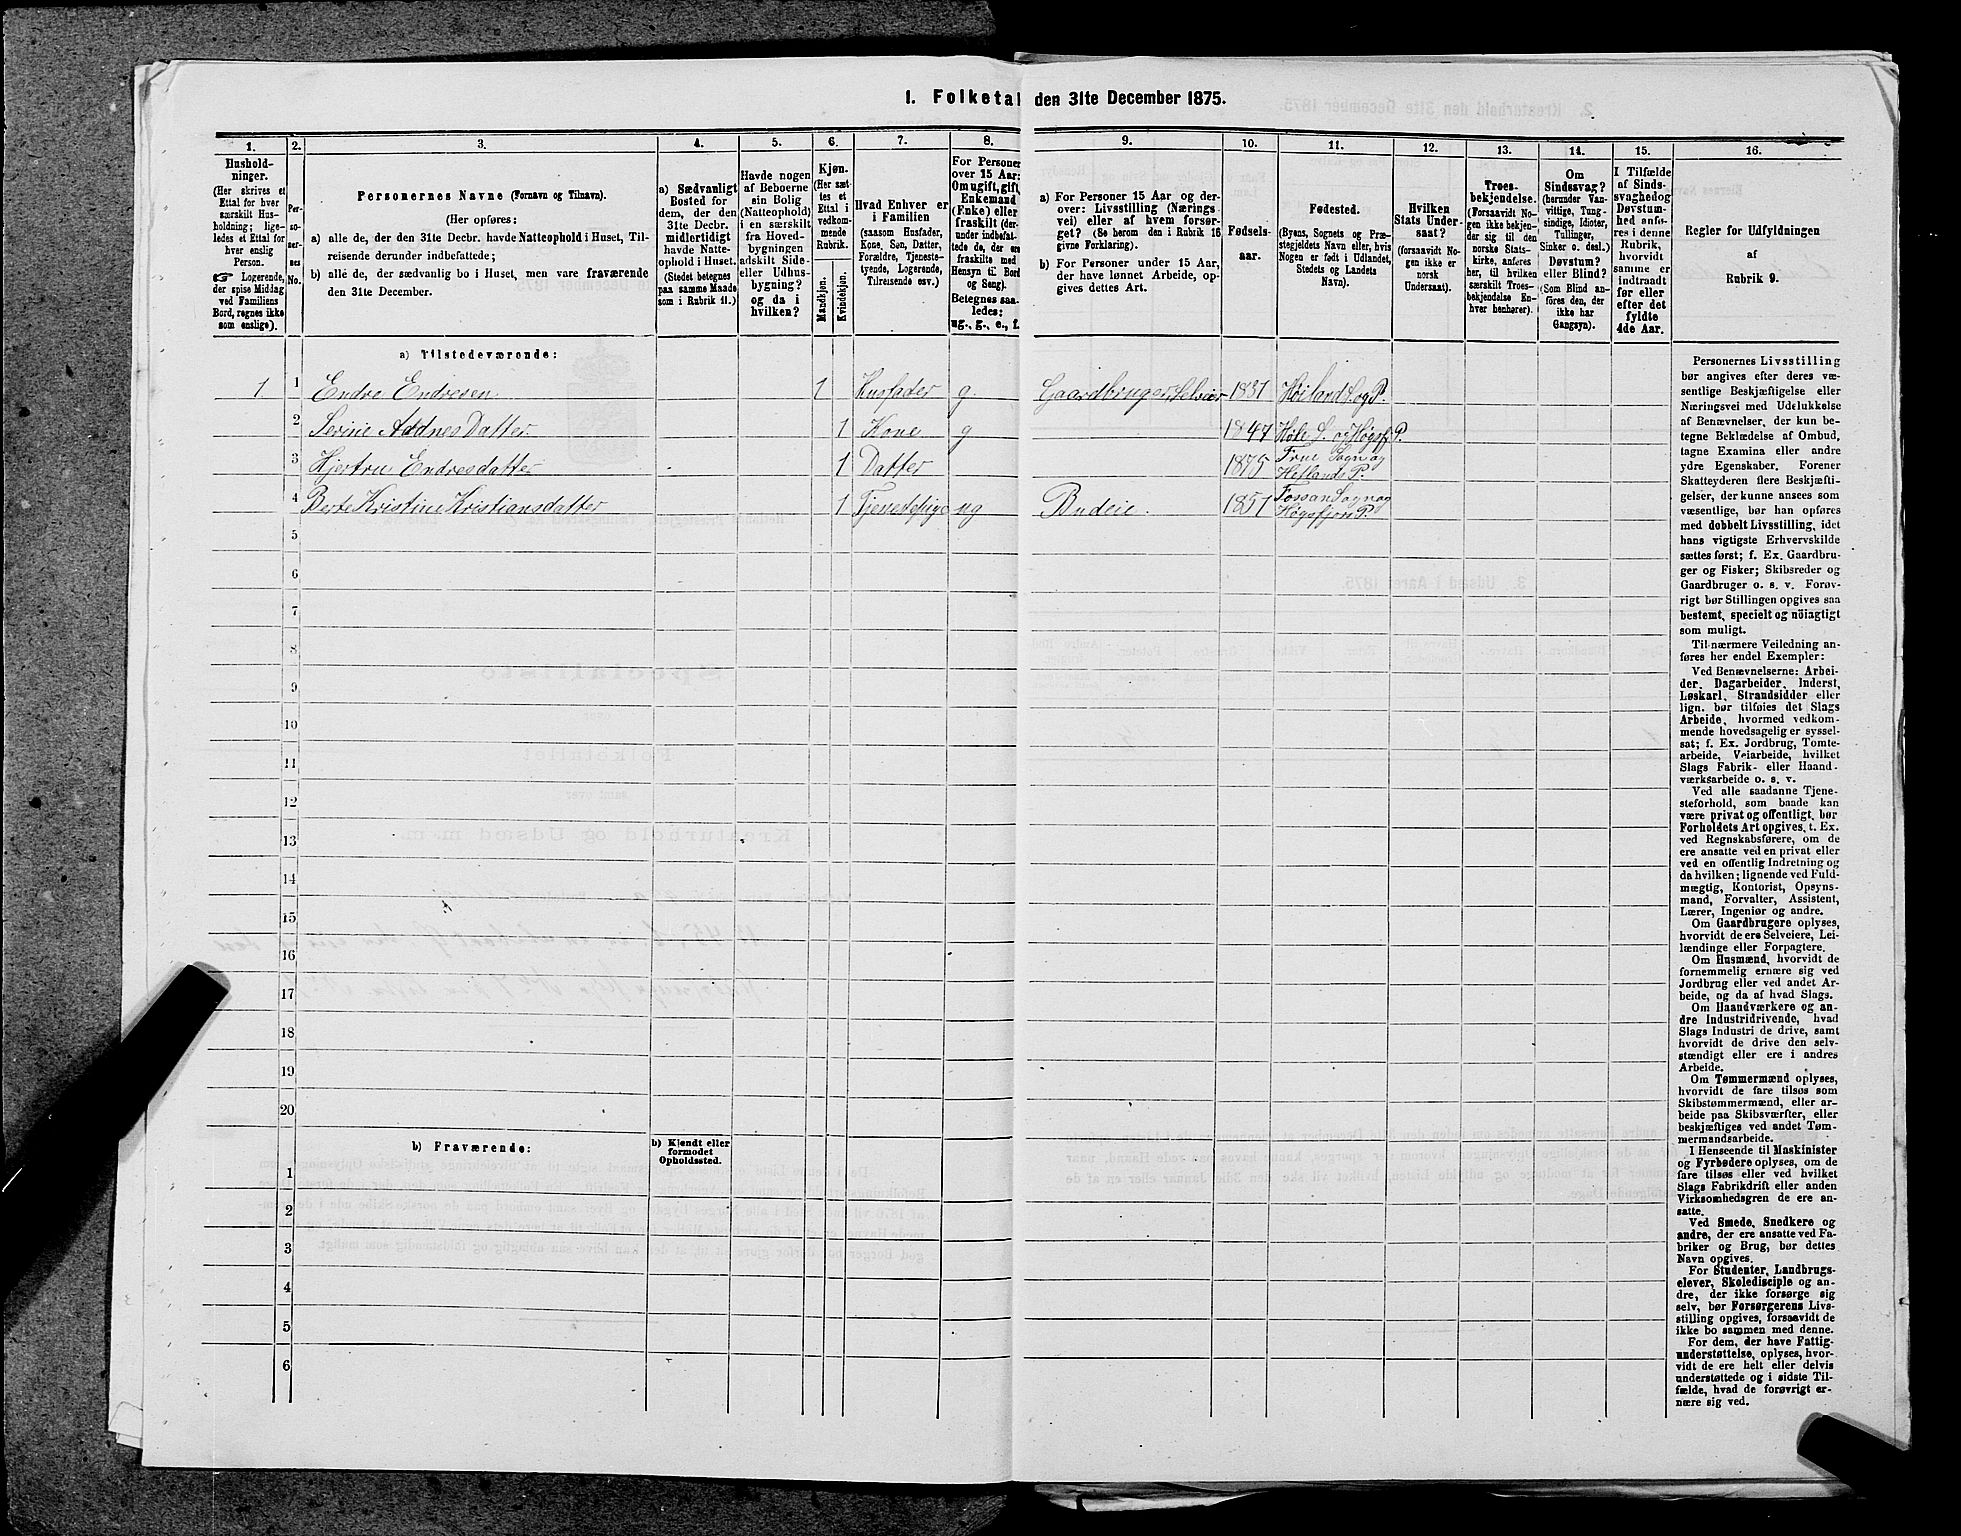 1. Folketal den 31te December 1875.
1.
2.
3.
4.
5.
6.
7.
8.
9.
10.
11.
12.
13.
14.
15.
16.
Hushold-
ninger.
(Her skrives et
Ettal for hver
særskilt Hus-
holdning; lige-
ledes et Ettal for
hver enslig
Person.
☞ Logerende,
der spise Middag
ved Familiens
Bord, regnes ikke
som enslige).
Per-
so-
ner-
nes
No.
Personernes Navne (Fornavn og Tilnavn).
(Her opføres:
a) alle de, der den 31te Decbr. havde Natteophold i Huset, Til-
reisende derunder indbefattede;
b) alle de, der sædvanlig bo i Huset, men vare fraværende
den 31te December.
a) Sædvanligt
Bosted for
dem, der den
31te Decbr.
midlertidigt
havde Natte-
ophold i Huset.
(Stedet betegnes
paa samme Maade
som i Rubrik 11.)
Havde nogen
af Beboerne
sin Bolig
(Natteophold)
i en særskilt
fra Hoved-
bygningen
adskilt Side-
eller Udhus-
bygning?
og da i
hvilken?
Kjøn.
(Her sæt-
tes et
Ettal i
vedkom-
mende
Rubrik.
Mandkjøn.
Kvindekjøn.
Hvad Enhver er
i Familien
(saasom Husfader,
Kone, Søn, Datter,
Forældre, Tjeneste-
tyende, Logerende,
Tilreisende osv.)
For Personer
over 15 Aar:
Om ugift, gift,
Enkemand
(Enke) eller
fraskilt (der-
under indbefat-
tede de, der ere
fraskilte med
Hensyn til Bord
og Seng).
Betegnes saa-
ledes:
ug., g., e., f.
a) For Personer 15 Aar og der-
over: Livsstilling (Nærings
vei) eller af hvem forsør-
get? (Se herom den i Rubrik 16
givne Forklaring).
b) For Personer under 15 Aar,
der have lønnet Arbeide, op-
gives dettes Art.
Fødsels-
aar.
Fødested.
(Byens, Sognets og Præ-
stegjeldets Navn eller, hvis
Nogen er født i Udlandet,
Stedets og Landets
Navn).
Hvilken
Stats Under-
saat?
(forsaavidt No-
gen ikke er
norsk
Undersaat).
Troes-
bekjendelse.
(Forsaavidt No-
gen ikke bekjen-
der sig til den
norske Stats-
kirke, anføres
her, til hvilken
særskilt Troes-
bekjendelse En-
hver henhører).
Om
Sindssvag?
(herunder Van-
vittige, Tung-
sindige, Idioter,
Tullinger,
Sinker o. desl.)
Døvstum?
eller Blind?
(Som Blind an-
føres den, der
ikke har
Gangsyn).
I Tilfælde
af Sinds-
svaghed og
Døvstum-
hed anfø-
res i denne
Rubrik,
hvorvidt
samme er
indtraadt
før eller
efter det
fyldte
4de Aar.
Regler for Udfyldningen
af
Rubrik 9.
a) Tilstedeværende:
1. 1 Endre Endresen 1 Husfader g. Gaardbruger Selveier 1831 Høiland S. og P.
2 Serine AddnesDatter. 1 Kone g 1847 Høle S. og Høgsfj P.
3 Hjertru Endresdatter 1 Datter 1875 Frue Sogn og
Hetlands P.
4 Berte Kristine Kristiansdatter 1 Tjenestpige ug Budeie. 1851 Fossan Sogn og
Høgsfjord P.
5
6
7
8
9
10
11
12
13
14
15
16
17
18
19
20
b) Fraværende:
b) Kjendt eller
formodet
Opholdssted.
1
2
3
4
5
6
Personernes Livsstilling
bør angives efter deres væ-
sentlige Beskjæftigelse eller
Næringsvei med Udelukkelse
af Benævnelser, der kun be-
tegne Beklædelse af Ombud,
tagne Examina eller andre
ydre Egenskaber. Forener
Skatteyderen flere Beskjæfti-
gelser, der kunne ansees som
væsentlige, bør han opføres
med dobbelt Livsstilling, idet
hans vigtigste Erhvervskilde
sættes først; f. Ex. Gaardbru-
ger og Fisker; Skibsreder og
Gaardbruger o. s. v. Forøv-
rigt bør Stillingen opgives saa
bestemt, specielt og nöiagtigt
som muligt.
Til nærmere Veiledning an-
føres her endel Exempler:
Ved Benævnelserne: Arbei-
der, Dagarbeider, Inderst,
Løskarl, Strandsidder eller
lign. bør tilføies det Slags
Arbeide, hvormed vedkom-
mende hovedsagelig er syssel-
sat; f. Ex. Jordbrug, Tomte-
arbeide, Veiarbeide, hvilket
Slags Fabrik- eller Haand-
værksarbeide o. s. v.
Ved alle saadanne Tjene-
steforhold, som baade kan
være privat og offentligt, bør
Forholdets Art opgives, t. Ex.
ved Regnskabsførere, om de
ere ansatte ved en privat eller
ved en offentlig Indretning og
da hvilken; lignende ved Fuld-
mægtig, Kontorist, Opsyns-
mand, Forvalter, Assistent,
Lærer, Ingeniør og andre.
Om Gaardbrugere oplyses,
hvorvidt de ere Selveiere, Lei-
lændinge eller Forpagtere.
Om Husmænd, hvorvidt de
fornemmelig ernære sig ved
Jordbrug eller ved andet Ar-
beide, og da af hvad Slags.
Om Haandværkere og an-
dre Industridrivende, hvad
Slags Industri de drive, samt
hvorvidt de drive den selv-
stændigt eller ere i andres
Arbeide.
Om Tømmermænd oplyses,
hvorvidt de fare tilsøs som
Skibstømmermænd, eller ar-
beide paa Skibsværfter, eller
beskjæftiges ved andet Tøm-
mermandsarbeide.
I Henseende til Maskinister
og Fyrbødere oplyses, om de
fare tilsøs eller ved hvilket
Slags Fabrikdrift eller anden
Virksomhedsgren de ere an-
satte.
Ved Smede, Snedkere og
andre, der ere ansatte ved Fa-
briker og Brug, bør dettes
Navn opgives.
For Studenter, Landbrugs-
elever, Skoledisciple og an-
dre, der ikke forsørge sig
selv, bør Forsørgerens Livs-
stilling opgives, forsaavidt de
ikke bo sammen med denne.
For dem, der have Fattig-
understøttelse, oplyses, hvor-
vidt de ere helt eller delvis
understøttede og i sidste Til-
fælde, hvad de forøvrigt er-
nære sig ved.